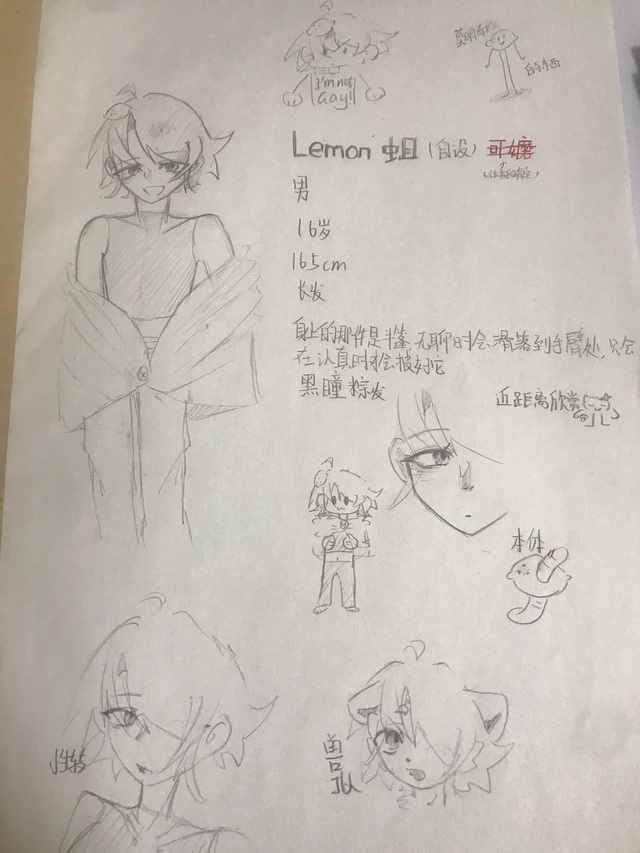 I'm not
Gay!!
莫明奇妙
的东西
Lemon 蛆(自设) 可嬷
男
16岁
165cm
长发
身上的那件是斗篷,无聊时会滑落到手臂处,只会
在认真时才会披好它
黑瞳棕发
近距离欣赏
本体
性转
兽